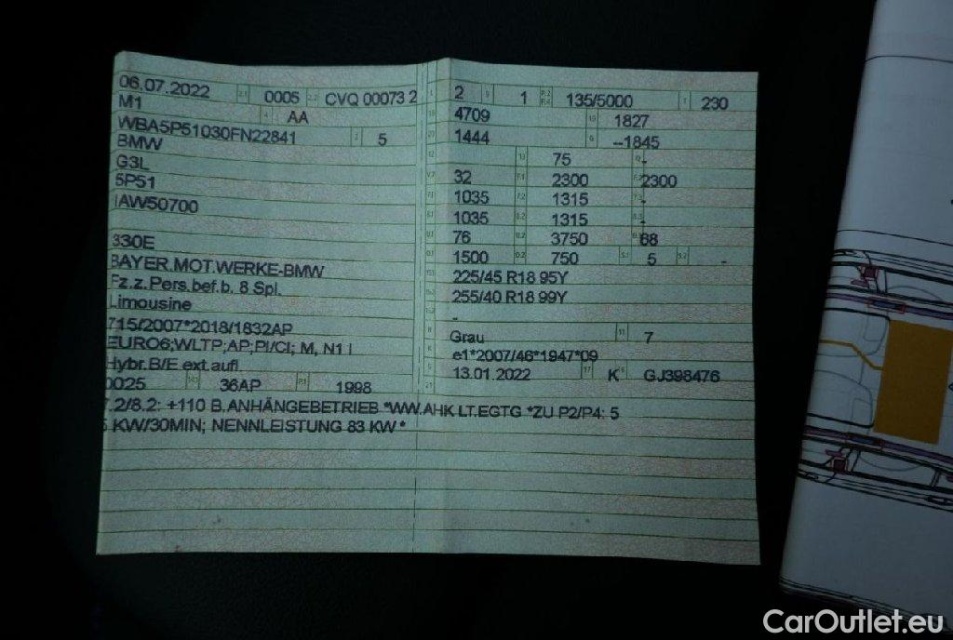 06.07.2022 0005 CVQ 00073 2
M1 AA
WBA5P51030FN22841 5
BMW
G3L
5P51
IAW50700
330E
BAYER.MOT.WERKE-BMW
Fz.z.Pers.bef.b. 8 Spl.
Limousine
715/2007*2018/1832AP
EURO6;WLTP;AP;PI/CI; M, N1 I
Hybr.B/E ext.aufl.
0025 36AP 1998
2 1 135/5000 230
4709 1827
1444 --1845
75 -
32 2300 2300
1035 1315 -
1035 1315 -
76 3750 68
1500 750 5 -
225/45 R18 95Y
255/40 R18 99Y
-
Grau 7
e1*2007/46*1947*09
13.01.2022 K GJ398476
7.2/8.2: +110 B.ANHÄNGEBETRIEB *WW.AHK LT.EGTG *ZU P2/P4: 5
KW/30MIN; NENNLEISTUNG 83 KW*
CarOutlet.eu